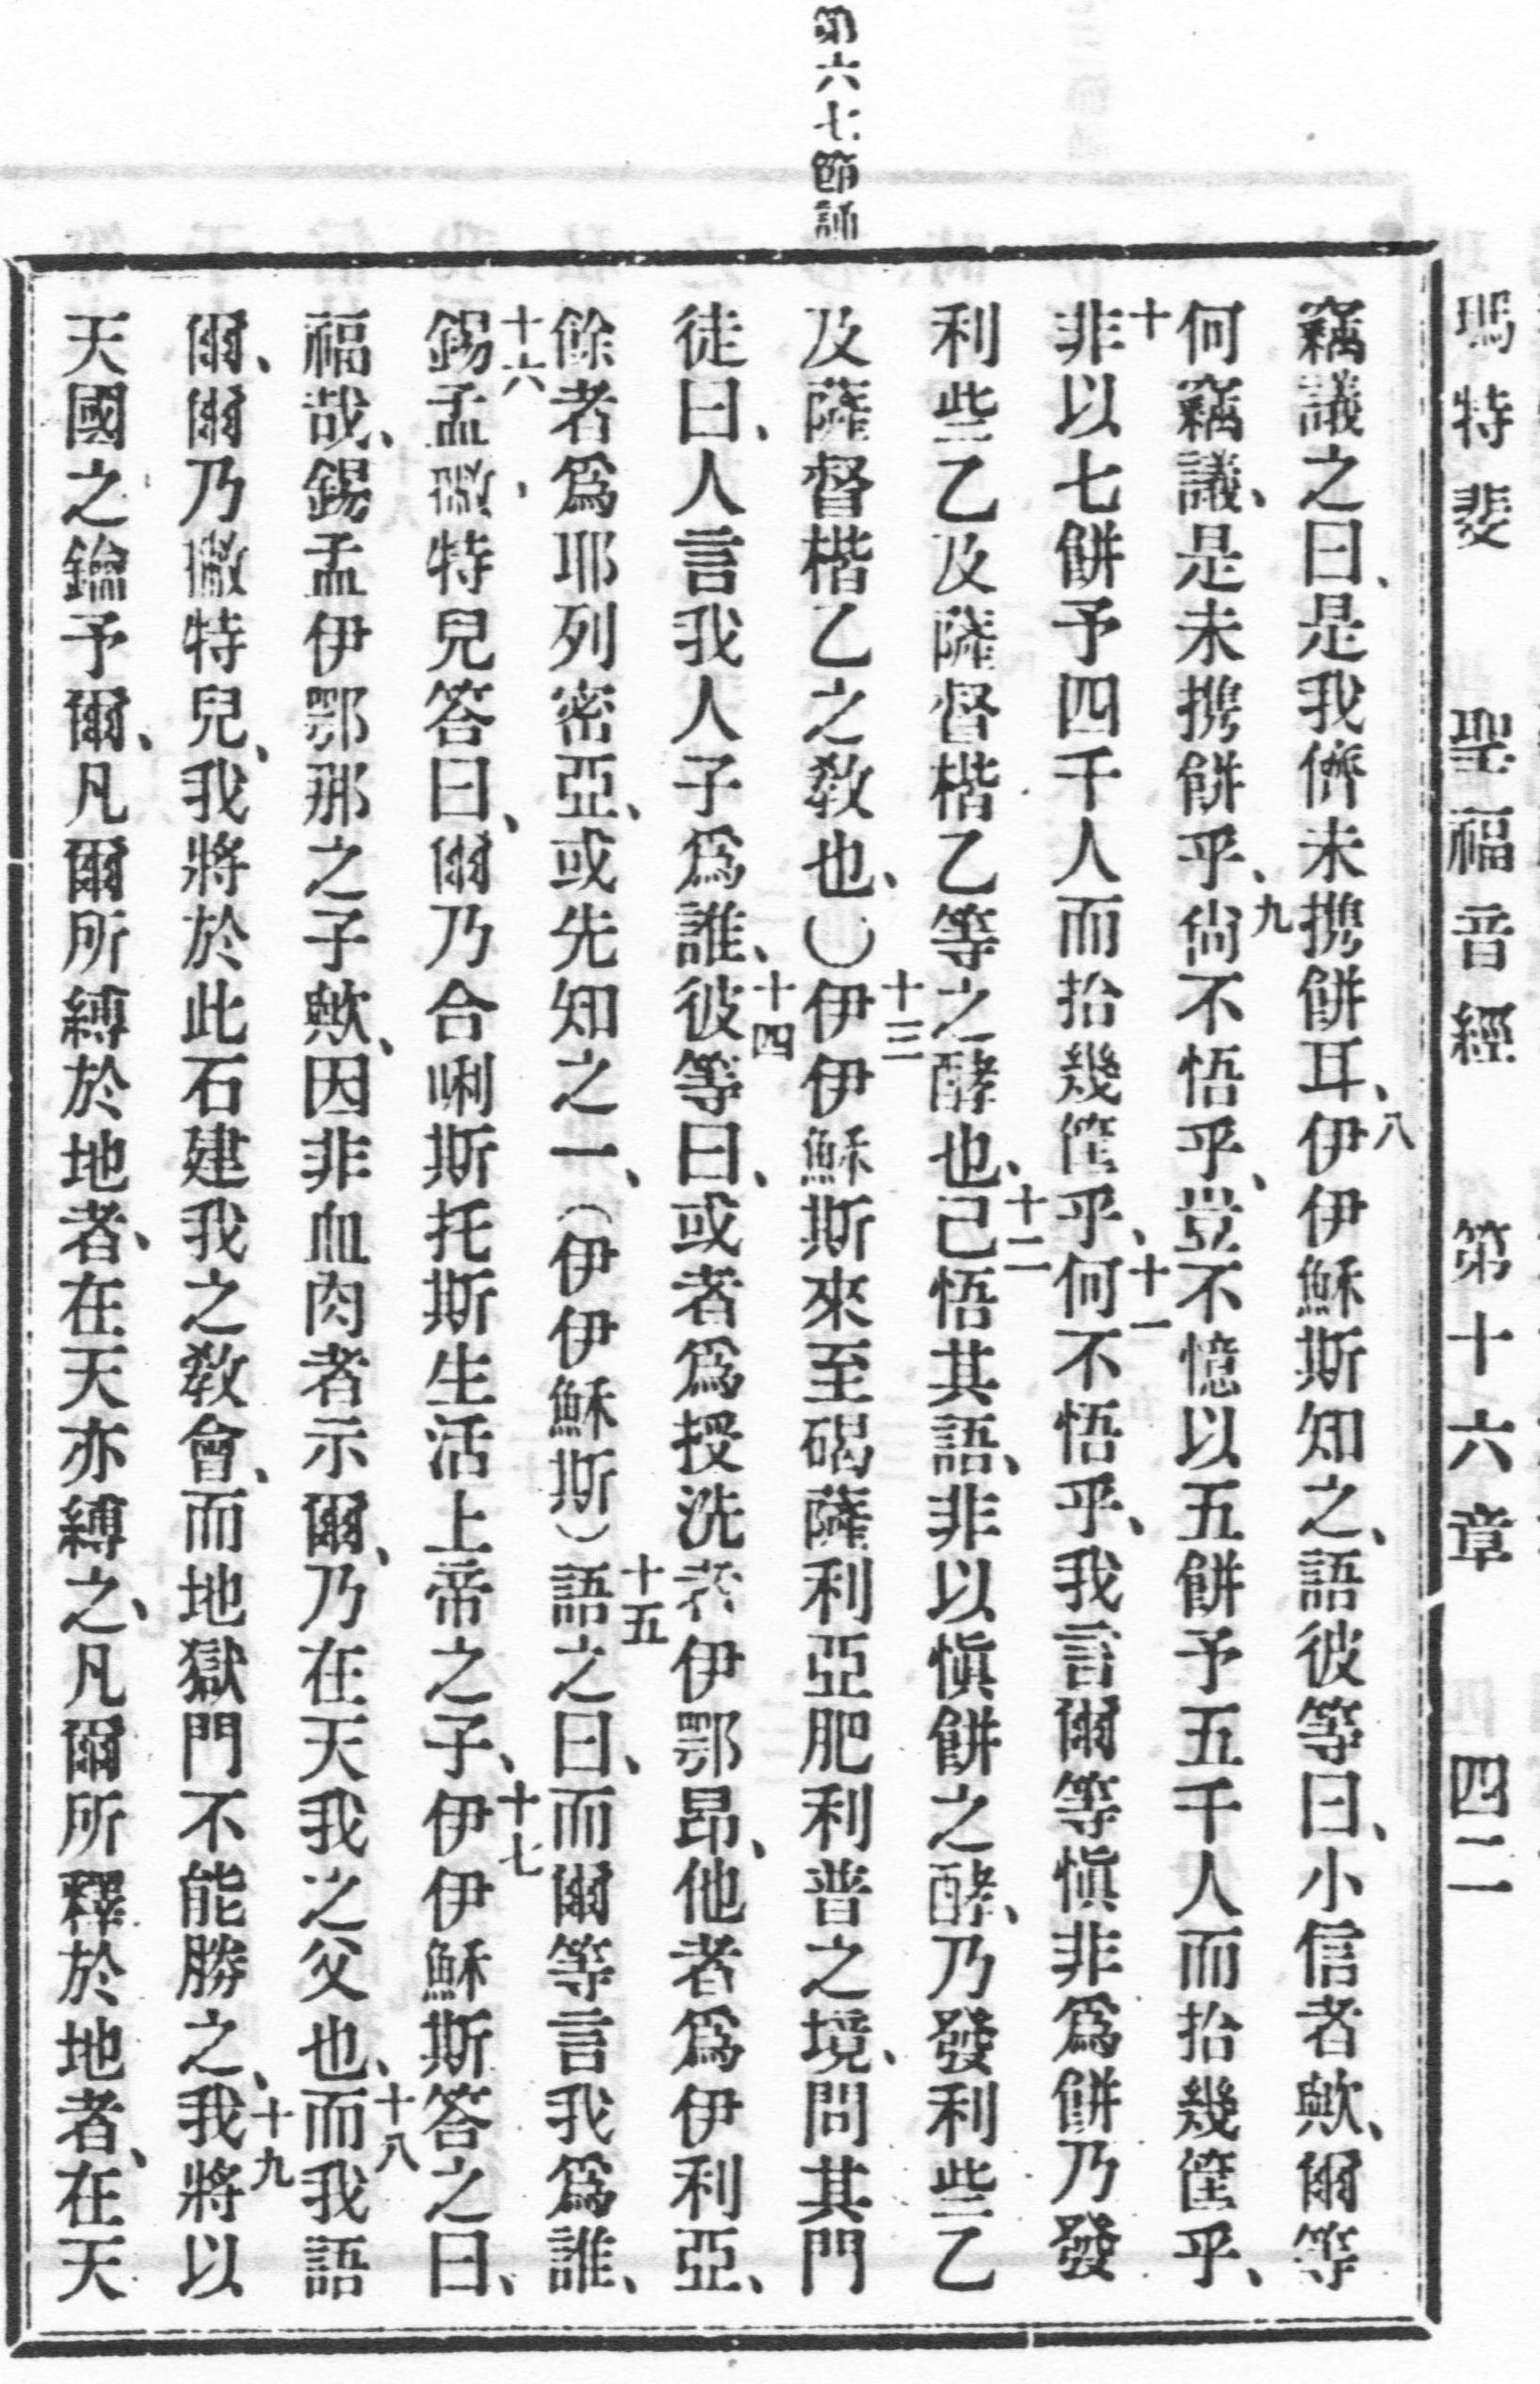 瑪特斐 聖福音經 第十六章 四二
竊議之曰、是我儕未携餅耳、八伊伊穌斯知之、語彼等曰、小信者歟、爾等
何竊議、是未携餅乎、九尙不悟乎、豈不憶以五餅予五千人而拾幾筐乎、
十非以七餅予四千人而拾幾筐乎、十一何不悟乎、我言爾等愼非爲餅乃發
利些乙及薩督楷乙等之酵也、十二己悟其語、非以愼餅之酵、乃發利些乙
第六七節誦
及薩督楷乙之敎也、()十三伊伊穌斯來至碣薩利亞肥利普之境、問其門
徒曰、人言我人子爲誰、十四彼等曰、或者爲授洗者伊鄂昂、他者爲伊利亞、
餘者爲耶列密亞、或先知之一、(伊伊穌斯)十五語之曰、而爾等言我爲誰、
十六錫孟撒特兒答曰、爾乃合唎斯托斯生活上帝之子、十七伊伊穌斯答之曰、
福哉、錫孟伊鄂那之子歟、因非血肉者示爾、乃在天我之父也、十八而我語
爾、爾乃撒特兒、我將於此石建我之敎會、而地獄門不能勝之、十九我將以
天國之鑰予爾、凡爾所縛於地者、在天亦縛之、凡爾所釋於地者、在天